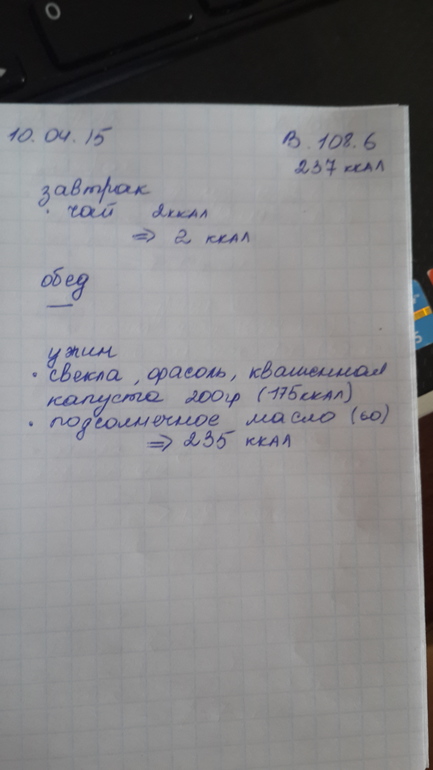 10.04.15
В. 108.6
237 ккал
завтрак
· чай 2ккал
=> 2 ккал
обед
—
ужин
· свекла, фасоль, квашенная
капуста 200гр (175ккал)
· подсолнечное масло (60)
=> 235 ккал